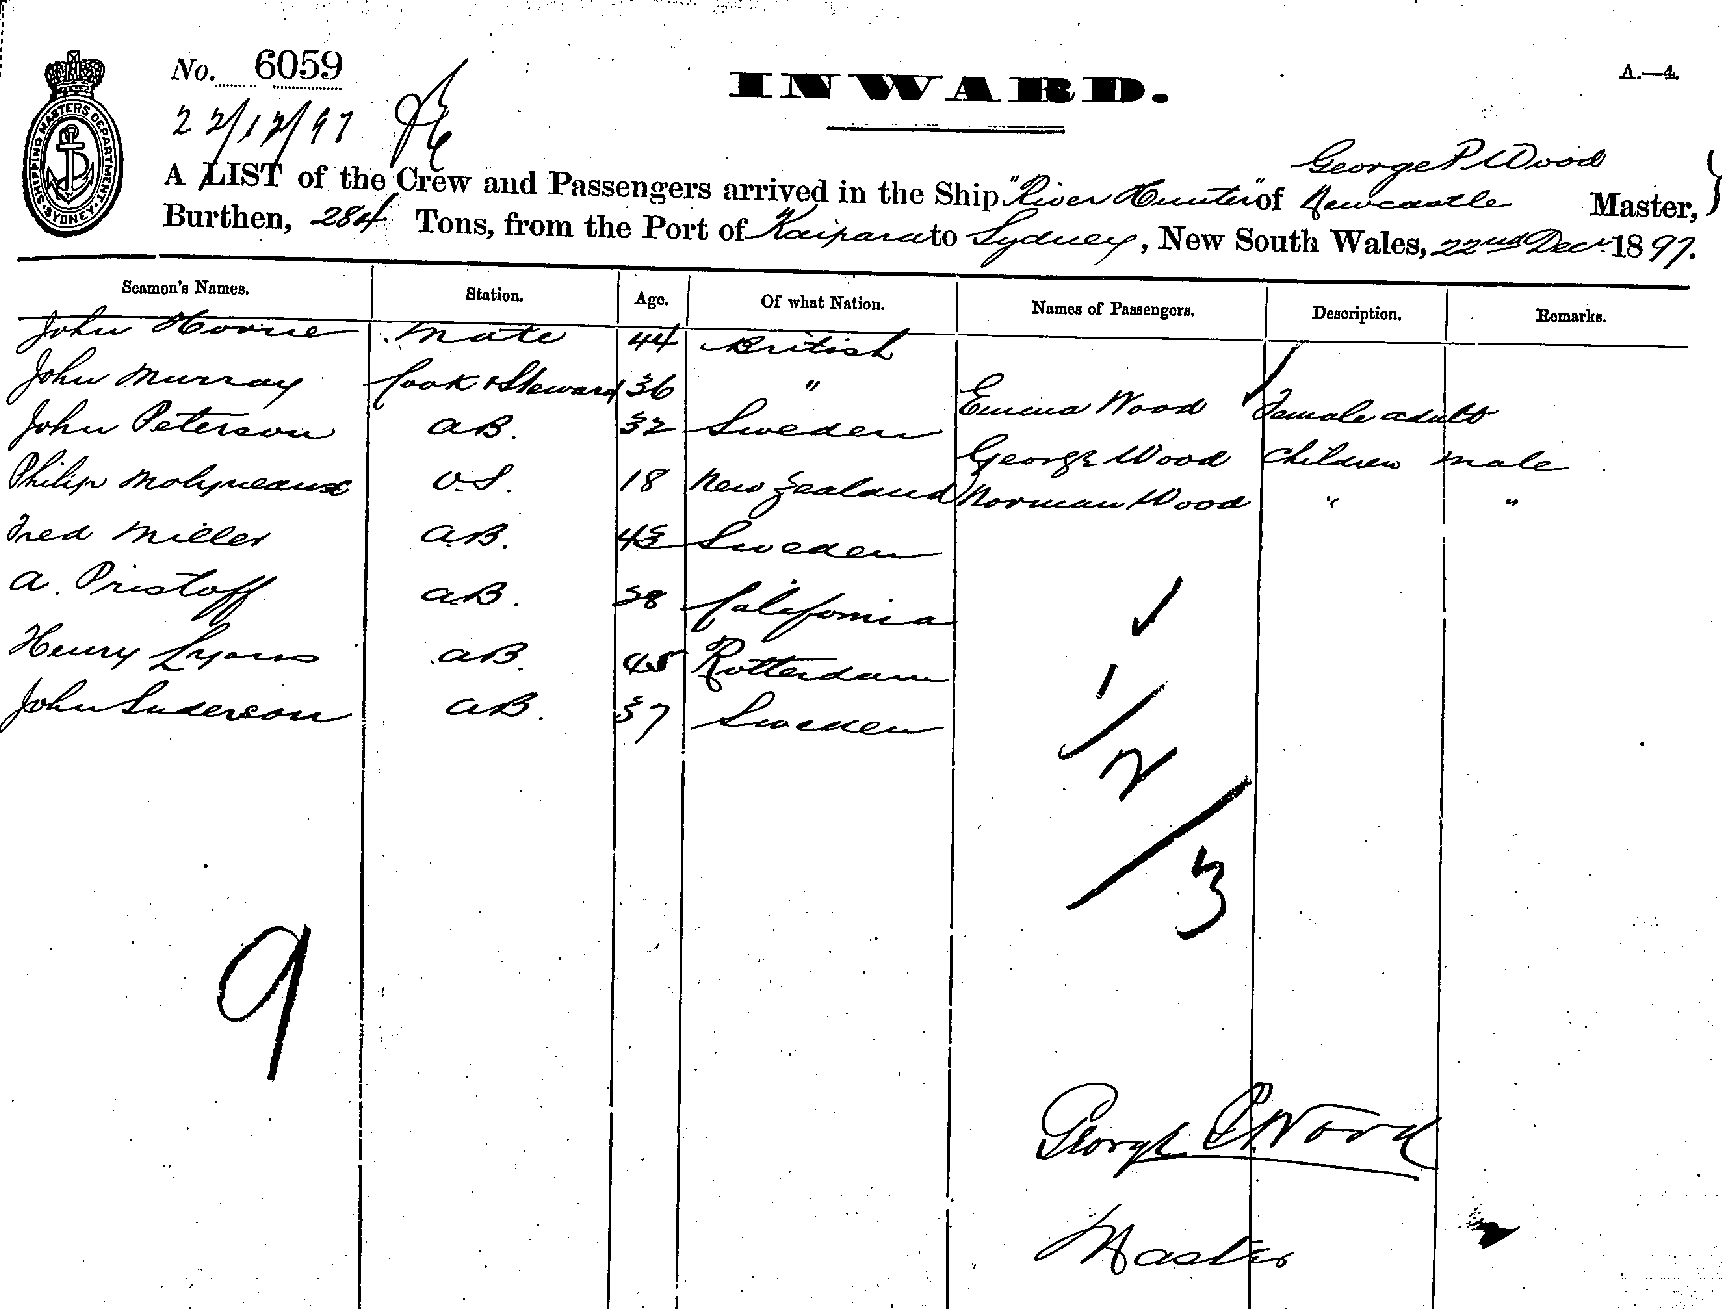 No. 6059
INWARD.
A.—4.
SHIPPING MASTERS DEPARTMENT. SYDNEY.
22/12/97
George P. Wood
A LIST of the Crew and Passengers arrived in the Ship "River Hunter" of Newcastle Master,
Burthen, 284 Tons, from the Port of Kaipara to Sydney, New South Wales, 22nd Decr 1897.
Seamen's Names. Station. Age. Of what Nation. Names of Passengers. Description. Remarks.
John Horne Mate 44 British
John Murray Cook & Steward 36 " Emma Wood Female adult
John Peterson AB. 32 Sweden George Wood Children male
Philip Molyneaux O.S. 18 New Zealand Norman Wood " "
Fred Miller A.B. 43 Sweden
A. Pristoff A.B. 38 California
Henry Lyons AB. 45 Rotterdam
John Anderson AB. 37 Sweden
1
2
3
9
George P. Wood
Master